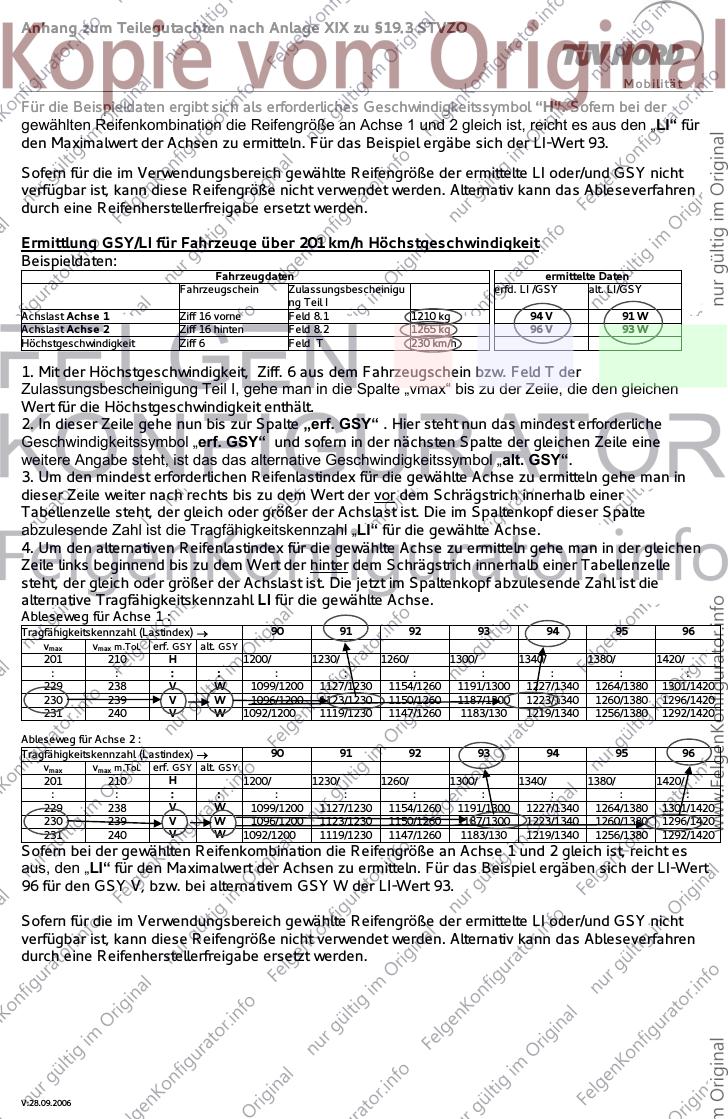 Anhang zum Teilegutachten nach Anlage XIX zu §19.3 STVZO
Kopie vom Original
TÜV NORD
Mobilität
Für die Beispieldaten ergibt sich als erforderliches Geschwindigkeitssymbol “H“. Sofern bei der
gewählten Reifenkombination die Reifengröße an Achse 1 und 2 gleich ist, reicht es aus den „LI“ für
den Maximalwert der Achsen zu ermitteln. Für das Beispiel ergäbe sich der LI-Wert 93.
Sofern für die im Verwendungsbereich gewählte Reifengröße der ermittelte LI oder/und GSY nicht
verfügbar ist, kann diese Reifengröße nicht verwendet werden. Alternativ kann das Ableseverfahren
durch eine Reifenherstellerfreigabe ersetzt werden.
Ermittlung GSY/LI für Fahrzeuge über 201 km/h Höchstgeschwindigkeit
Beispieldaten:
Fahrzeugdaten ermittelte Daten
Fahrzeugschein Zulassungsbescheinigu erfd. LI /GSY alt. LI/GSY
ng Teil I
Achslast Achse 1 Ziff 16 vorne Feld 8.1 1210 kg 94 V 91 W
Achslast Achse 2 Ziff 16 hinten Feld 8.2 1265 kg 96 V 93 W
Höchstgeschwindigkeit Ziff 6 Feld T 230 km/h
FELGEN
1. Mit der Höchstgeschwindigkeit, Ziff. 6 aus dem Fahrzeugschein bzw. Feld T der
Zulassungsbescheinigung Teil I, gehe man in die Spalte „vmax“ bis zu der Zeile, die den gleichen
Wert für die Höchstgeschwindigkeit enthält.
2. In dieser Zeile gehe nun bis zur Spalte „erf. GSY“ . Hier steht nun das mindest erforderliche
Geschwindigkeitssymbol „erf. GSY“ und sofern in der nächsten Spalte der gleichen Zeile eine
KONFIGURATOR
weitere Angabe steht, ist das das alternative Geschwindigkeitssymbol „alt. GSY“.
3. Um den mindest erforderlichen Reifenlastindex für die gewählte Achse zu ermitteln gehe man in
dieser Zeile weiter nach rechts bis zu dem Wert der vor dem Schrägstrich innerhalb einer
Tabellenzelle steht, der gleich oder größer der Achslast ist. Die im Spaltenkopf dieser Spalte
abzulesende Zahl ist die Tragfähigkeitskennzahl „LI“ für die gewählte Achse.
4. Um den alternativen Reifenlastindex für die gewählte Achse zu ermitteln gehe man in der gleichen
FelgenKonfigurator.info
Zeile links beginnend bis zu dem Wert der hinter dem Schrägstrich innerhalb einer Tabellenzelle
steht, der gleich oder größer der Achslast ist. Die jetzt im Spaltenkopf abzulesende Zahl ist die
alternative Tragfähigkeitskennzahl LI für die gewählte Achse.
Ableseweg für Achse 1 :
Tragfähigkeitskennzahl (Lastindex) → 90 91 92 93 94 95 96
vmax vmax m.Tol. erf. GSY alt. GSY
201 210 H 1200/ 1230/ 1260/ 1300/ 1340/ 1380/ 1420/
: : : : : : : : : : :
229 238 V W 1099/1200 1127/1230 1154/1260 1191/1300 1227/1340 1264/1380 1301/1420
230 239 V W 1096/1200 1123/1230 1150/1260 1187/1300 1223/1340 1260/1380 1296/1420
231 240 V W 1092/1200 1119/1230 1147/1260 1183/130 1219/1340 1256/1380 1292/1420
Ableseweg für Achse 2 :
Tragfähigkeitskennzahl (Lastindex) → 90 91 92 93 94 95 96
vmax vmax m.Tol. erf. GSY alt. GSY
201 210 H 1200/ 1230/ 1260/ 1300/ 1340/ 1380/ 1420/
: : : : : : : : : : :
229 238 V W 1099/1200 1127/1230 1154/1260 1191/1300 1227/1340 1264/1380 1301/1420
230 239 V W 1096/1200 1123/1230 1150/1260 1187/1300 1223/1340 1260/1380 1296/1420
231 240 V W 1092/1200 1119/1230 1147/1260 1183/130 1219/1340 1256/1380 1292/1420
Sofern bei der gewählten Reifenkombination die Reifengröße an Achse 1 und 2 gleich ist, reicht es
aus, den „LI“ für den Maximalwert der Achsen zu ermitteln. Für das Beispiel ergäben sich der LI-Wert
96 für den GSY V, bzw. bei alternativem GSY W der LI-Wert 93.
Sofern für die im Verwendungsbereich gewählte Reifengröße der ermittelte LI oder/und GSY nicht
verfügbar ist, kann diese Reifengröße nicht verwendet werden. Alternativ kann das Ableseverfahren
durch eine Reifenherstellerfreigabe ersetzt werden.
V:28.09.2006
nur gültig im Original
www.FelgenKonfigurator.info